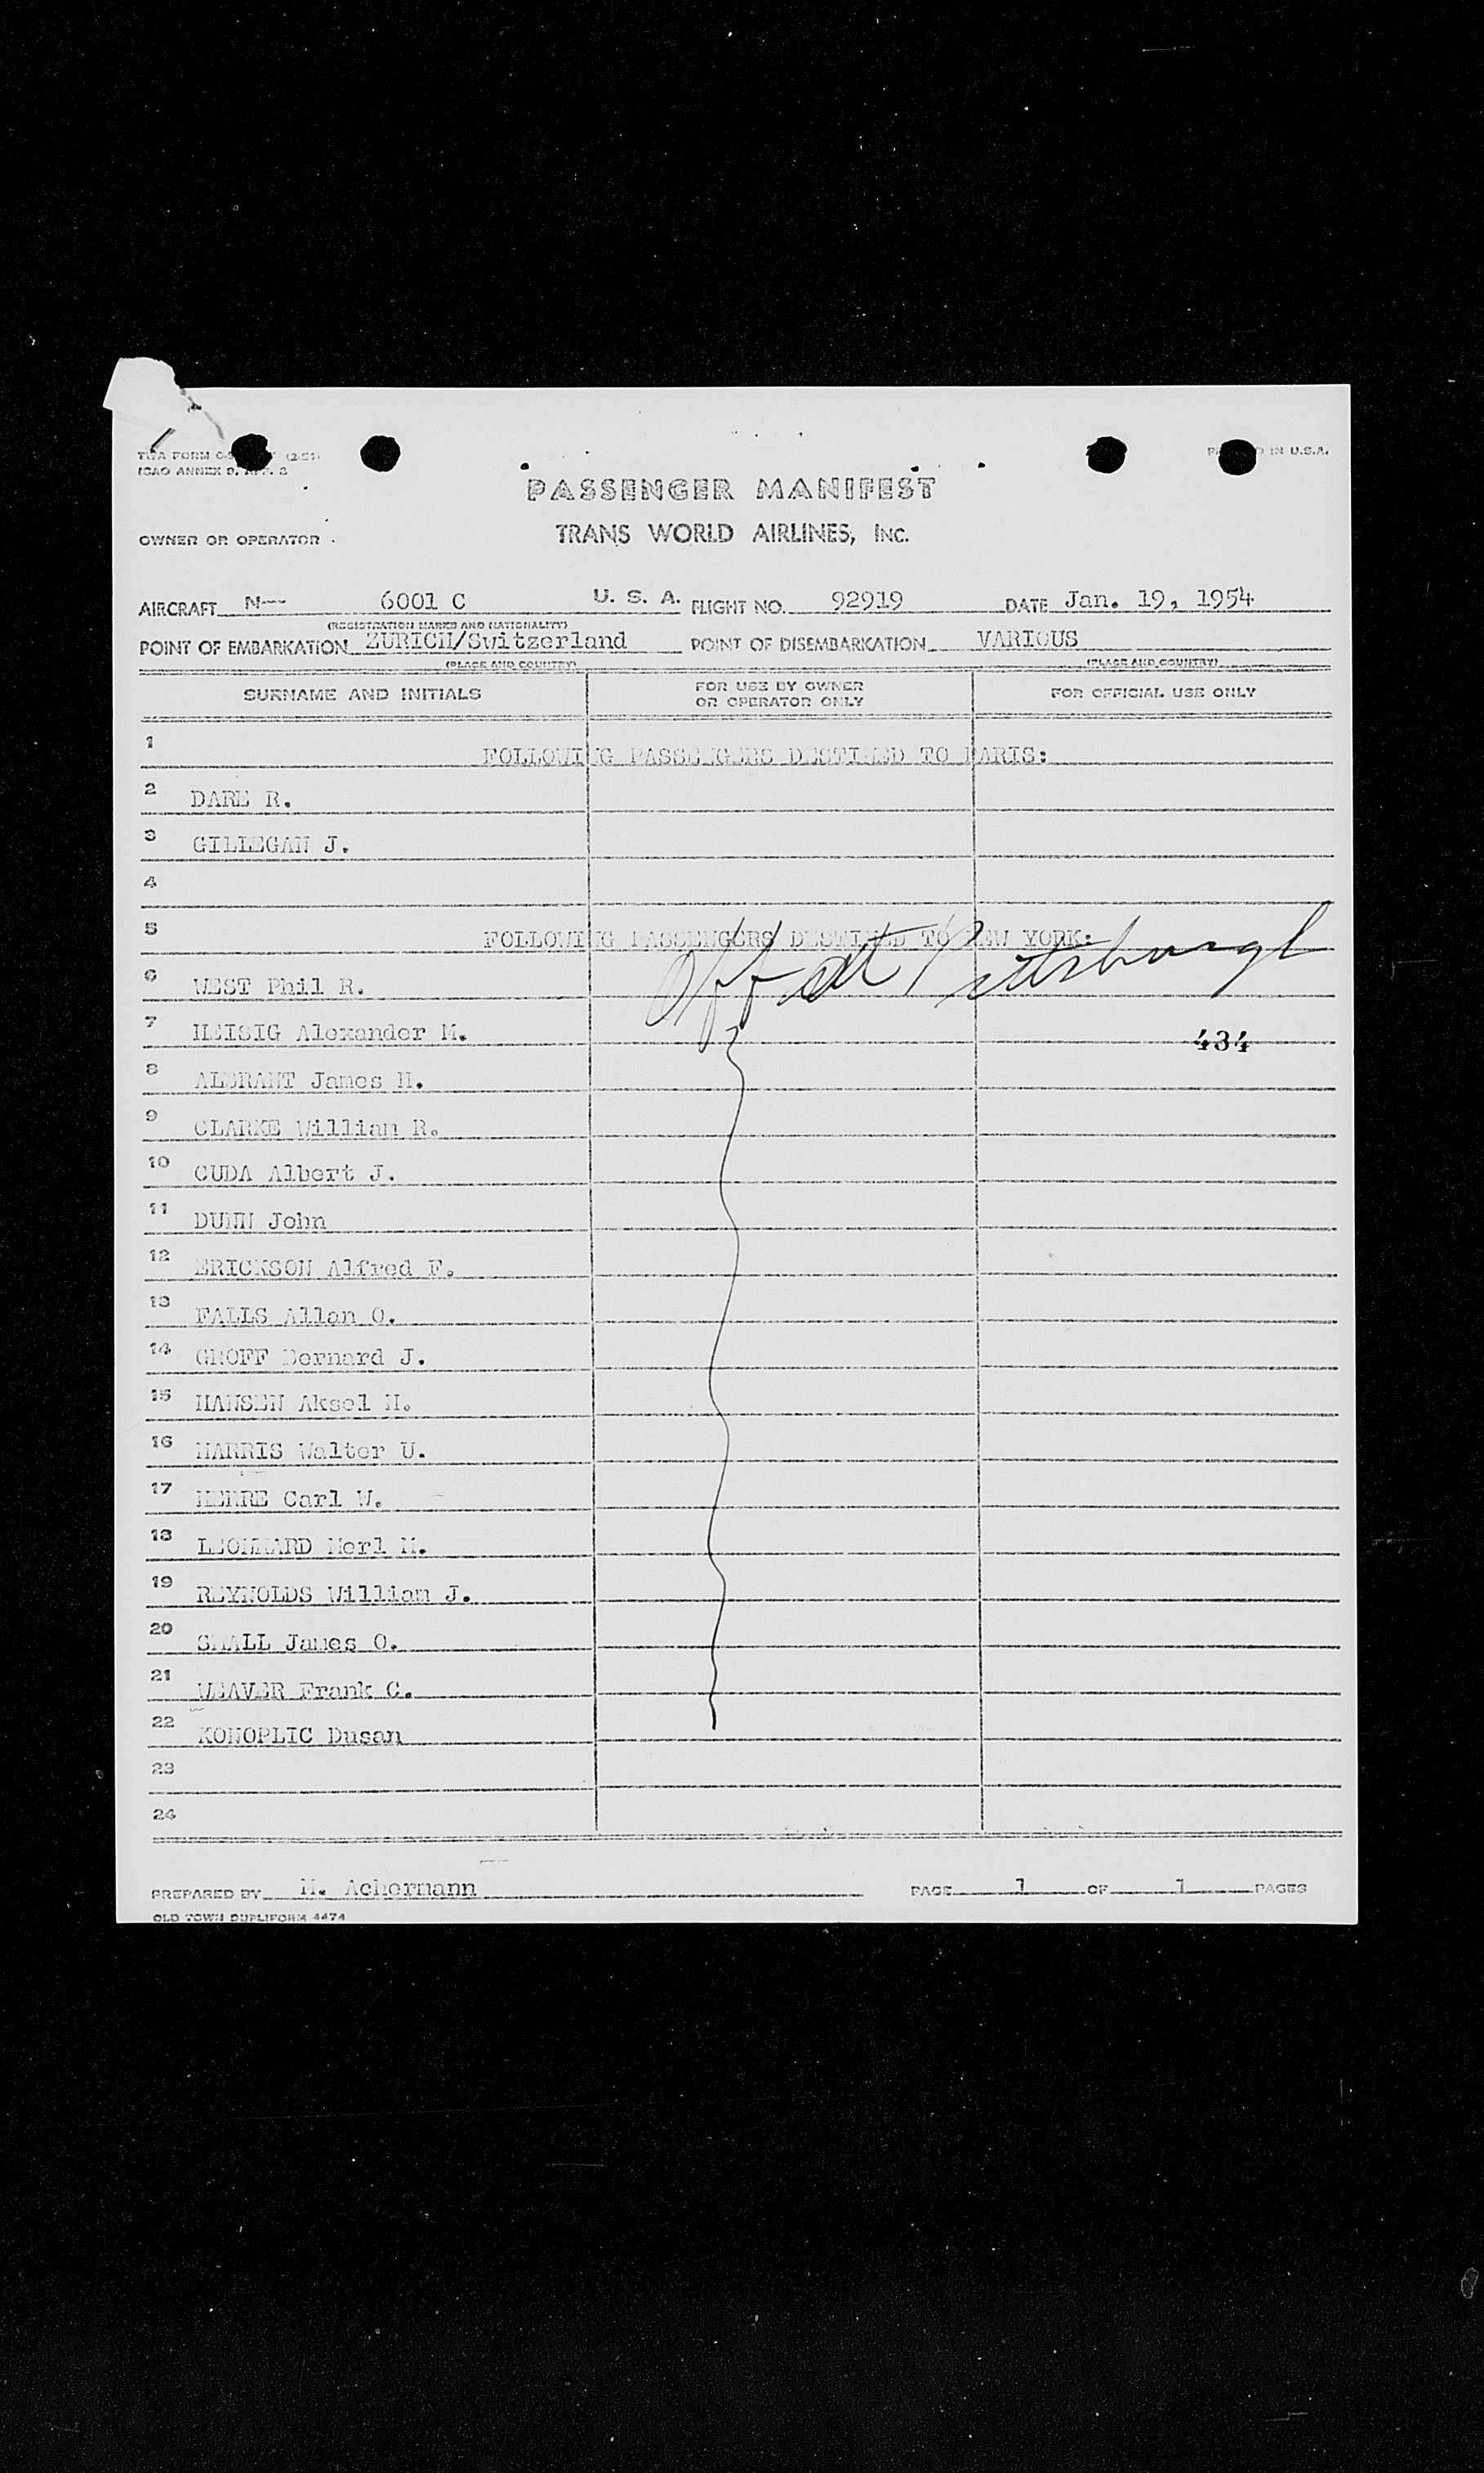 TWA FORM (2-51)
ICAO ANNEX 9, APP. 2
IN U.S.A.
PASSENGER MANIFEST
OWNER OR OPERATOR
TRANS WORLD AIRLINES, INC.
AIRCRAFT N-- 6001 C U. S. A. FLIGHT NO. 92919 DATE Jan. 19, 1954
(REGISTRATION MARKS AND NATIONALITY)
POINT OF EMBARKATION ZURICH/Switzerland POINT OF DISEMBARKATION VARIOUS
(PLACE AND COUNTRY) (PLACE AND COUNTRY)
SURNAME AND INITIALS FOR USE BY OWNER OR OPERATOR ONLY FOR OFFICIAL USE ONLY
1 FOLLOWING PASSENGERS DESTINED TO PARIS:
2 DARE R.
3 GILLEGAN J.
4
5 FOLLOWING PASSENGERS DESTINED TO NEW YORK:
Off at Pittsburgh
6 WEST Phil R.
7 HEISIG Alexander M. 434
8 ALBRANT James H.
9 CLARKE William R.
10 CUDA Albert J.
11 DUNN John
12 ERICKSON Alfred F.
13 FALLS Allan O.
14 GROFF Bernard J.
15 HANSEN Aksel H.
16 HARRIS Walter U.
17 Carl W.
18 LEONHARD Merl M.
19 REYNOLDS William J.
20 SMALL James O.
21 WEAVER Frank C.
22 KONOPLIC Dusan
23
24
PREPARED BY M. Achermann PAGE 1 OF 1 PAGES
OLD TOWN DUPLIFORM 4474